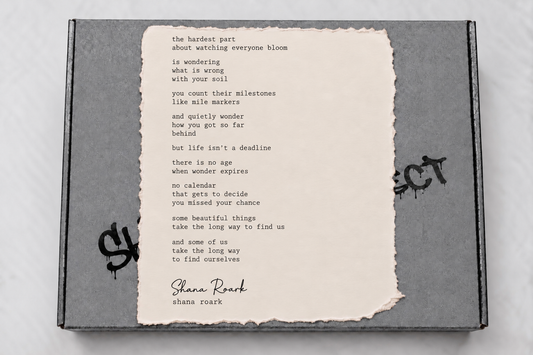 the hardest part
about watching everyone bloom
is wondering
what is wrong
with your soil
you count their milestones
like mile markers
and quietly wonder
how you got so far
behind
but life isn't a deadline
there is no age
when wonder expires
no calendar
that gets to decide
you missed your chance
some beautiful things
take the long way to find us
and some of us
take the long way
to find ourselves
Shana Roark
shana roark